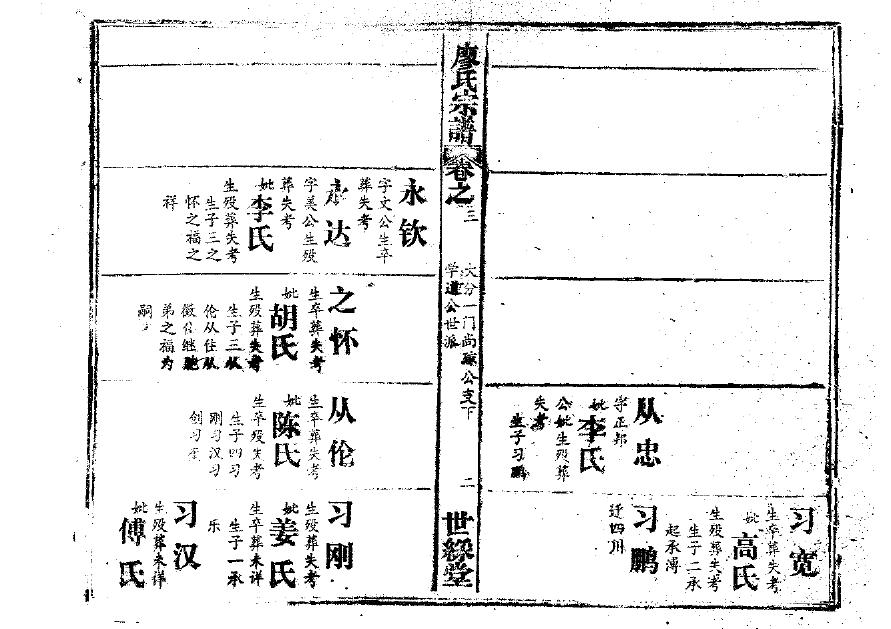 习宽
生卒葬失考
妣
高氏
生殁葬失考
生子二承
起承溥
习鹏
迁四川
从忠
字正邦
妣
李氏
公妣生殁葬
失考
生子习鹏
廖氏宗谱
卷之三
大分一门尚 公支下
学 公世派
二
世䌽堂
永钦
字文公生卒
葬失考
永达
字美公生殁
葬失考
妣
李氏
生殁葬失考
生子三之
怀之福之
祥
之怀
生卒葬失考
妣
胡氏
生殁葬失考
生子三从
伦从仕从
继
弟之福为
嗣
从伦
生卒葬失考
妣
陈氏
生卒殁失考
生子四习
刚习汉习
剑习
习刚
生殁葬失考
妣
姜氏
生卒葬未详
生子一承
乐
习汉
生殁葬未详
妣
傅氏